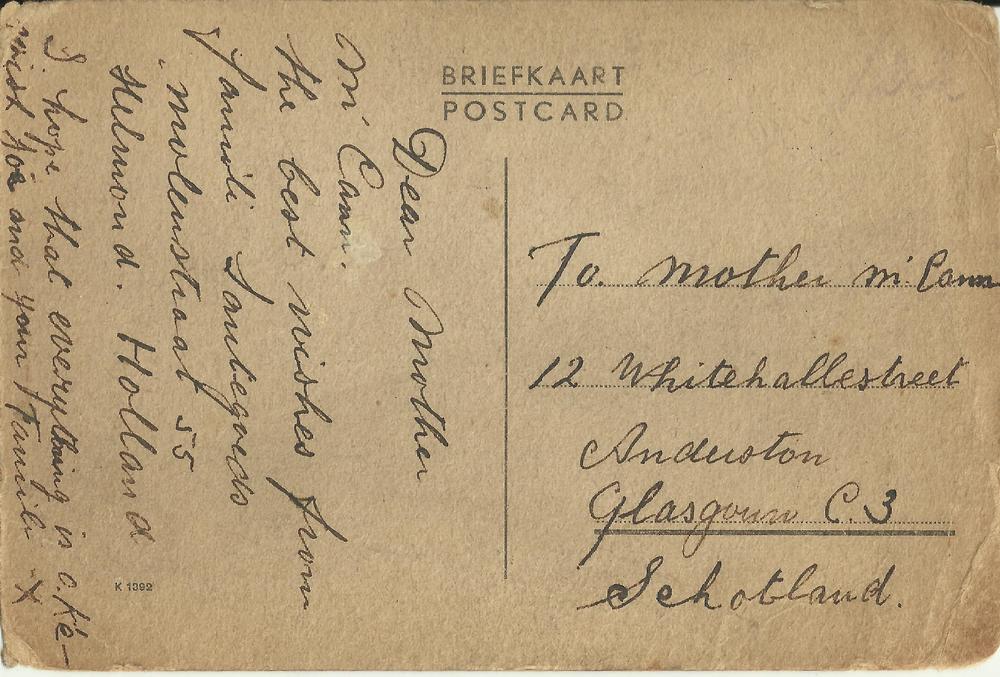 BRIEFKAART
POSTCARD
Dear Mother
Mc Cann.
the best wishes from
Famili Santegoeds
Molenstraat 55
Helmond. Holland
I hope that everything is o.ké
wist for and your Famili X
To. Mother Mc Cann
12 Whitehallestreet
Anderston
Glasgouw C.3
Schotland.
K 1392